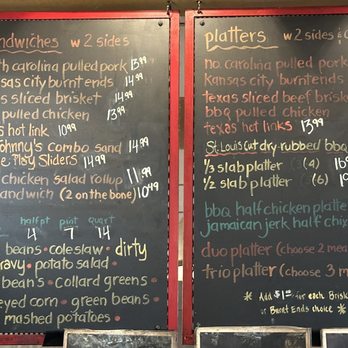 ndwiches w 2 sides
th carolina pulled pork 13.99
nsas city burnt ends 14.99
as sliced brisket 14.99
pulled chicken 13.99
s hot link 10.99
Johnny's combo sand 14.99
e Piggy Sliders 14.99
chicken salad rollup 11.99
andwich (2 on the bone) 10.49
halfpt pint quart
4 7 14
beans • coleslaw • dirty
ravy • potato salad •
bean's • collard greens •
eyed corn • green beans •
mashed potatoes •
platters w 2 sides &
no. carolina pulled pork
kansas city burnt ends
texas sliced beef brisket
bbq pulled chicken
texas hot links 13.99
St. Louis cut dry-rubbed bbq
1/3 slab platter (4) 16
1/2 slab platter (6) 1
bbq half chicken platte
jamaican jerk half chix
duo platter (choose 2 mea
trio platter (choose 3 m
* Add $1 for each Briske
or Burnt Ends choice *